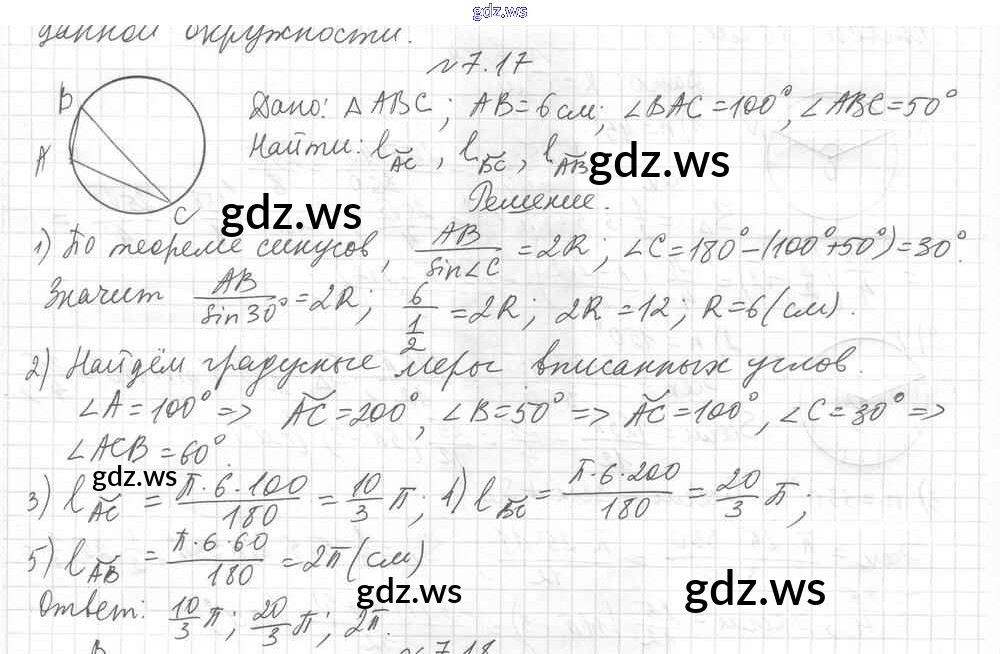 gdz.ws
данной окружности.
№7.17
B
A
C
Дано: △ABC; AB=6см; ∠BAC=100°, ∠ABC=50°
Найти: l⌣AC, l⌣BC, l⌣AB
gdz.ws
Решение.
gdz.ws
1) По теореме синусов, AB/sin∠C = 2R; ∠C=180°-(100°+50°)=30°.
Значит AB/sin30° = 2R; 6/(1/2) = 2R; 2R=12; R=6(см).
2) Найдём градусные меры вписанных углов.
∠A=100° => ⌣AC=200°, ∠B=50° => ⌣AC=100°, ∠C=30° =>
∠ACB=60°.
gdz.ws
3) l⌣AC = π·6·100/180 = 10/3 π; 4) l⌣BC = π·6·200/180 = 20/3 π;
5) l⌣AB = π·6·60/180 = 2π(см)
gdz.ws
gdz.ws
Ответ: 10/3 π; 20/3 π; 2π.
B
№7.18